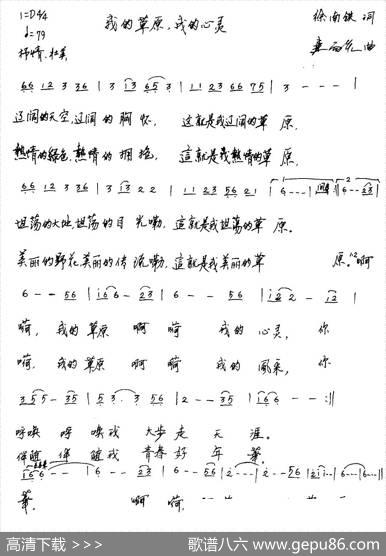 1=D 4/4
我的草原,我的心灵
徐南铁 词
♩=79
抒情.壮美
曲
66 12 3 36 | 3 | 11 23 66 75 | 3 - - - |
辽阔的天空,辽阔的胸怀, 这就是我辽阔的草原.
热情的绿色,热情的拥抱, 這就是我热情的草原,
66 12 3 36 | 3 13 2 2 | 11 23 56 21 | 6 - - - | 6 - -
坦荡的大地坦荡的目光嘞,這就是我坦荡的草原。
美丽的野花美丽的传说嘞,這就是我美丽的草 原.啊
6 - - 56 | 116 6 - 23 | 6 - - 56 | 122 - 12 |
嗬, 我的草原 啊嗬 我的心灵, 你
嗬. 我的草原 啊嗬 我的風采, 你
355 - 35 | 53. 3 56 | 2 - - 35 | 166 - - :||
呼唤 呼唤我 大步走天涯.
伴随 伴随我 青春好年華.
華. 啊嗬.
高清下载 >>>
歌谱八六 www.gepu86.com